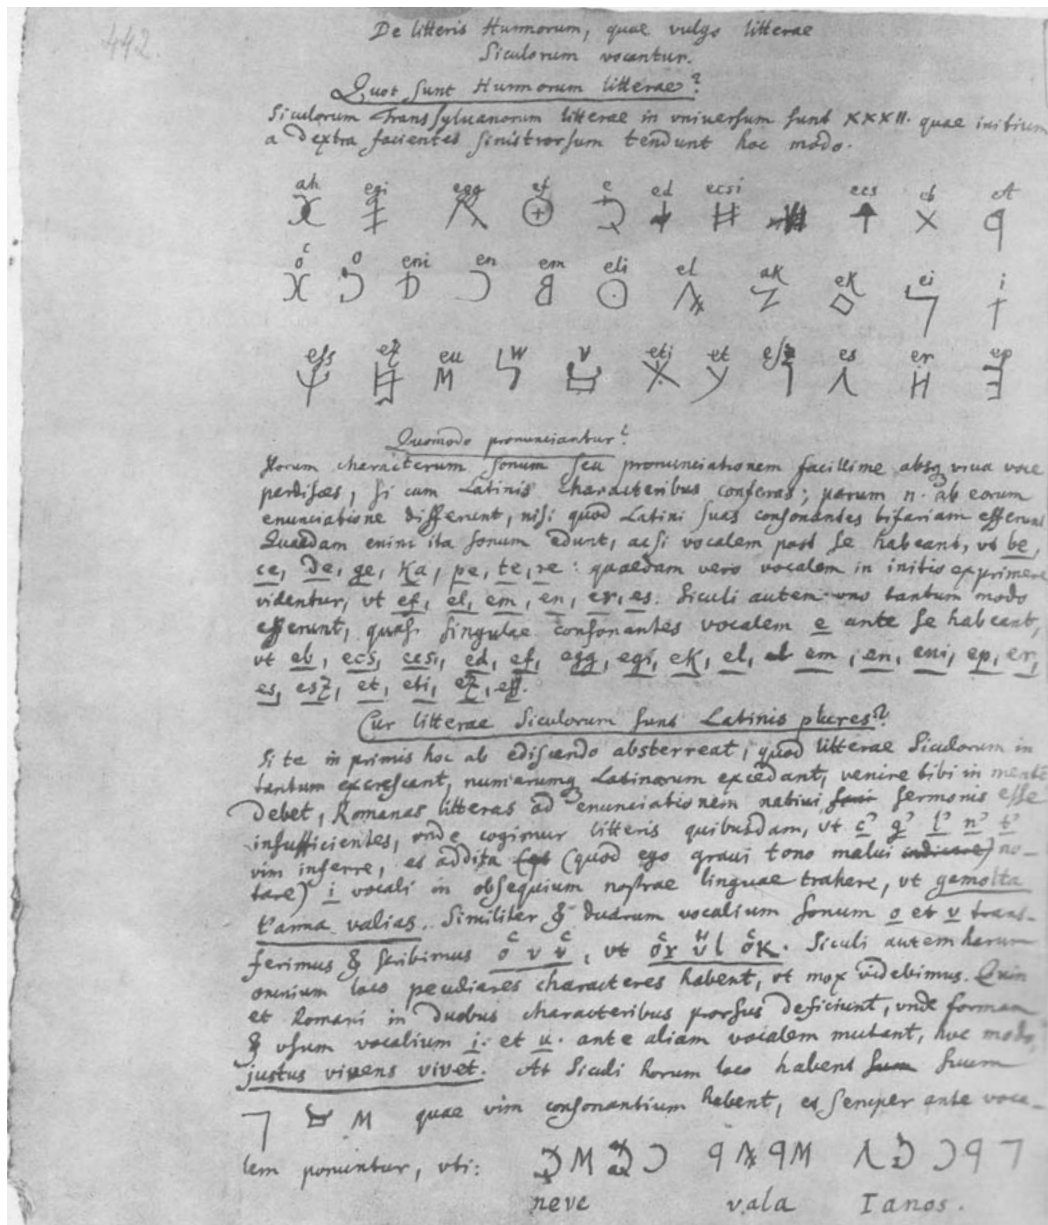 442.
De litteris Hunnorum, quae vulgo litterae
Siculorum vocantur.
Quot sunt Hunnorum litterae?
Siculorum Transsylvanorum litterae in vniversum sunt XXXII. quae initium
a dextra facientes sinistrorsum tendunt hoc modo.
ah egi egg ef e ed ecsi ecs eb A
o o eni en em eli el ak ek ei i
ess ez eu w v eti et esz es er ep
Quomodo pronunciantur?
Horum characterum sonum seu pronunciationem facillime absq viva voce
perdisces, si cum Latinis characteribus conferas; parum n. ab eorum
enunciatione differunt, nisi quod Latini suas consonantes bifariam efferunt
Quaedam enim ita sonum edunt, acsi vocalem post se habeant, vt be,
ce, de, ge, ka, pe, te, re: quaedam vero vocalem in initio exprimere
videntur, vt ef, el, em, en, er, es. Siculi autem vno tantum modo
efferunt, quasi singulae consonantes vocalem e ante se habeant,
vt eb, ecs, ecsi, ed, ef, egg, egi, ek, el, em, en, eni, ep, er,
es, esz, et, eti, ez, ess.
Cur litterae Siculorum sunt Latinis plures?
Si te in primis hoc ab ediscendo absterreat, quod litterae Siculorum in
tantum excrescant, numerumq Latinarum excedant, venire tibi in mente
debet, Romanas litteras ad enunciationem nativi sermonis esse
insufficientes, vnde cogimur litteris quibusdam, vt c' g' l' n' t'
vim inferre, et addita (quod ego gravi tono malui no-
tare) i vocali in obsequium nostrae linguae trahere, vt gemolta
t'anna valias. Similiter & duarum vocalium sonum o et v trans-
ferimus & scribimus o v v, vt ox vl ok. Siculi autem harum
omnium loco peculiares characteres habent, vt mox videbimus. Quin
et Romani in duobus characteribus prorsus deficiunt, vnde formam
& vsum vocalium i. et u. ante aliam vocalem mutant, hoc modo,
justus vivens vivet. At Siculi horum loco habent suum
quae vim consonantium habent, et semper ante voca-
lem ponuntur, vti:
neve vala Ianos.